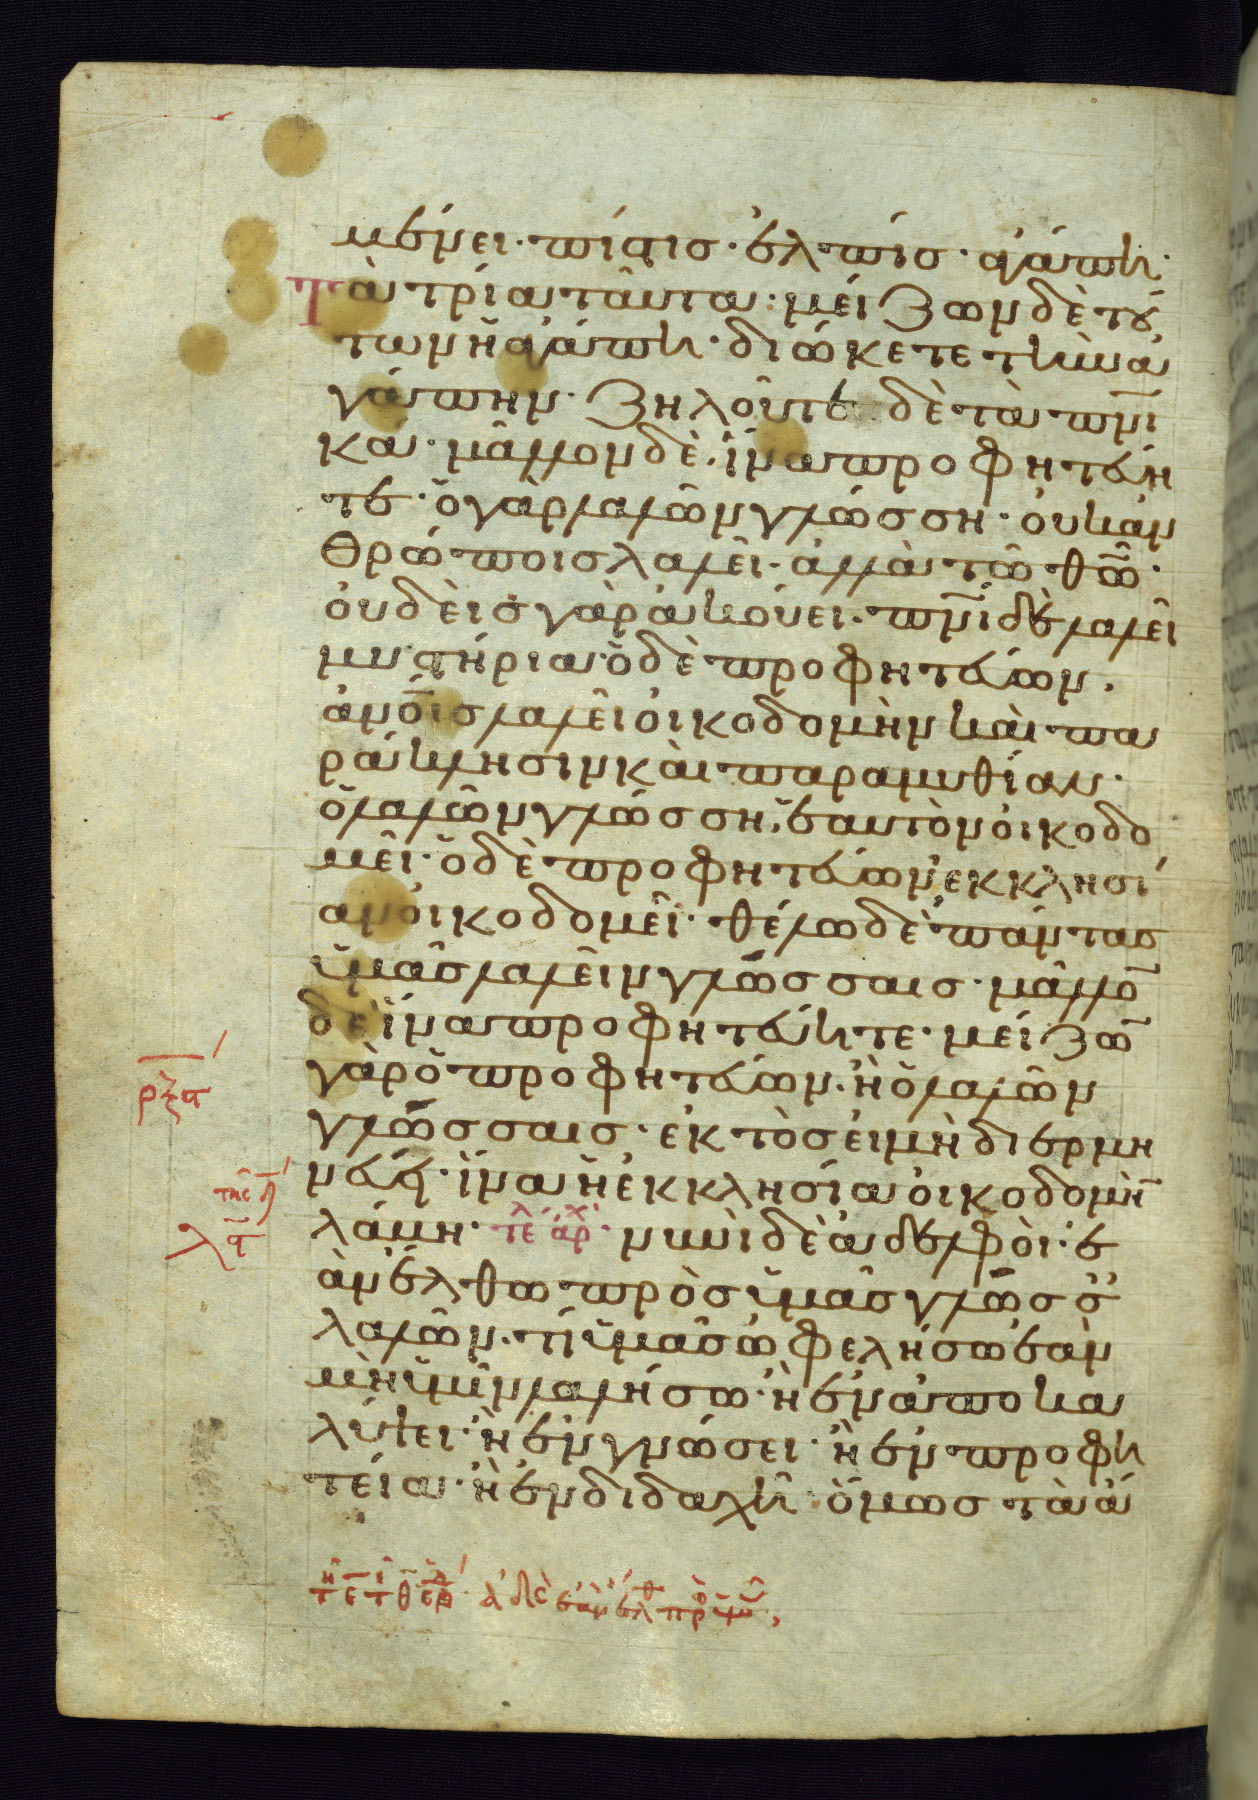 μένει· πίστις· ἐλπίς· ἀγάπη·
Τὰ τρία ταῦτα· μείζων δὲ τού
των ἡ ἀγάπη· διώκετε τὴν ἀ
γάπην· ζηλοῦτε δὲ τὰ πν̅ι
κά· μᾶλλον δὲ ἵνα προφητεύη
τε· ὁ γὰρ λαλῶν γλώσση· οὐκ ἀν
θρώποις λαλεῖ· ἀλλὰ τῶ θ̅ω̅·
οὐδεὶς γὰρ ἀκούει· πν̅ι δὲ λαλεῖ
μυστήρια· ὁ δὲ προφητεύων,
ἀν̅ο̅ι̅ς λαλεῖ οἰκοδομὴν καὶ πα
ράκλησιν καὶ παραμυθίαν·
ὁ λαλῶν γλώσση, ἑαυτὸν οἰκοδο
μεῖ· ὁ δὲ προφητεύων ἐκκλησί
αν οἰκοδομεῖ· θέλω δὲ πάντας
ὑμᾶς λαλεῖν γλώσσαις· μᾶλλο̅
δὲ ἵνα προφητεύητε· μείζω̅
γὰρ ὁ προφητεύων· ἢ ὁ λαλῶν
γλώσσαις· ἐκτὸς εἰ μὴ διερμη
νεύει· ἵνα ἡ ἐκκλησία οἰκοδομὴ̅
λάβη· τε̅λ ἀρχ νυνὶ δὲ ἀδελφοὶ· ἐ
ὰν ἔλθω πρὸς ὑμᾶς γλώσσ
λαλῶν· τί ὑμᾶς ὠφελήσω ἐὰν
μὴ ὑμῖν λαλήσω· ἢ ἐν ἀποκα
λύψει· ἢ ἐν γνώσει· ἢ ἐν προφη
τεία· ἢ ἐν διδαχῆ· ὅμως τὰ ἄ
ρξα
τῆς